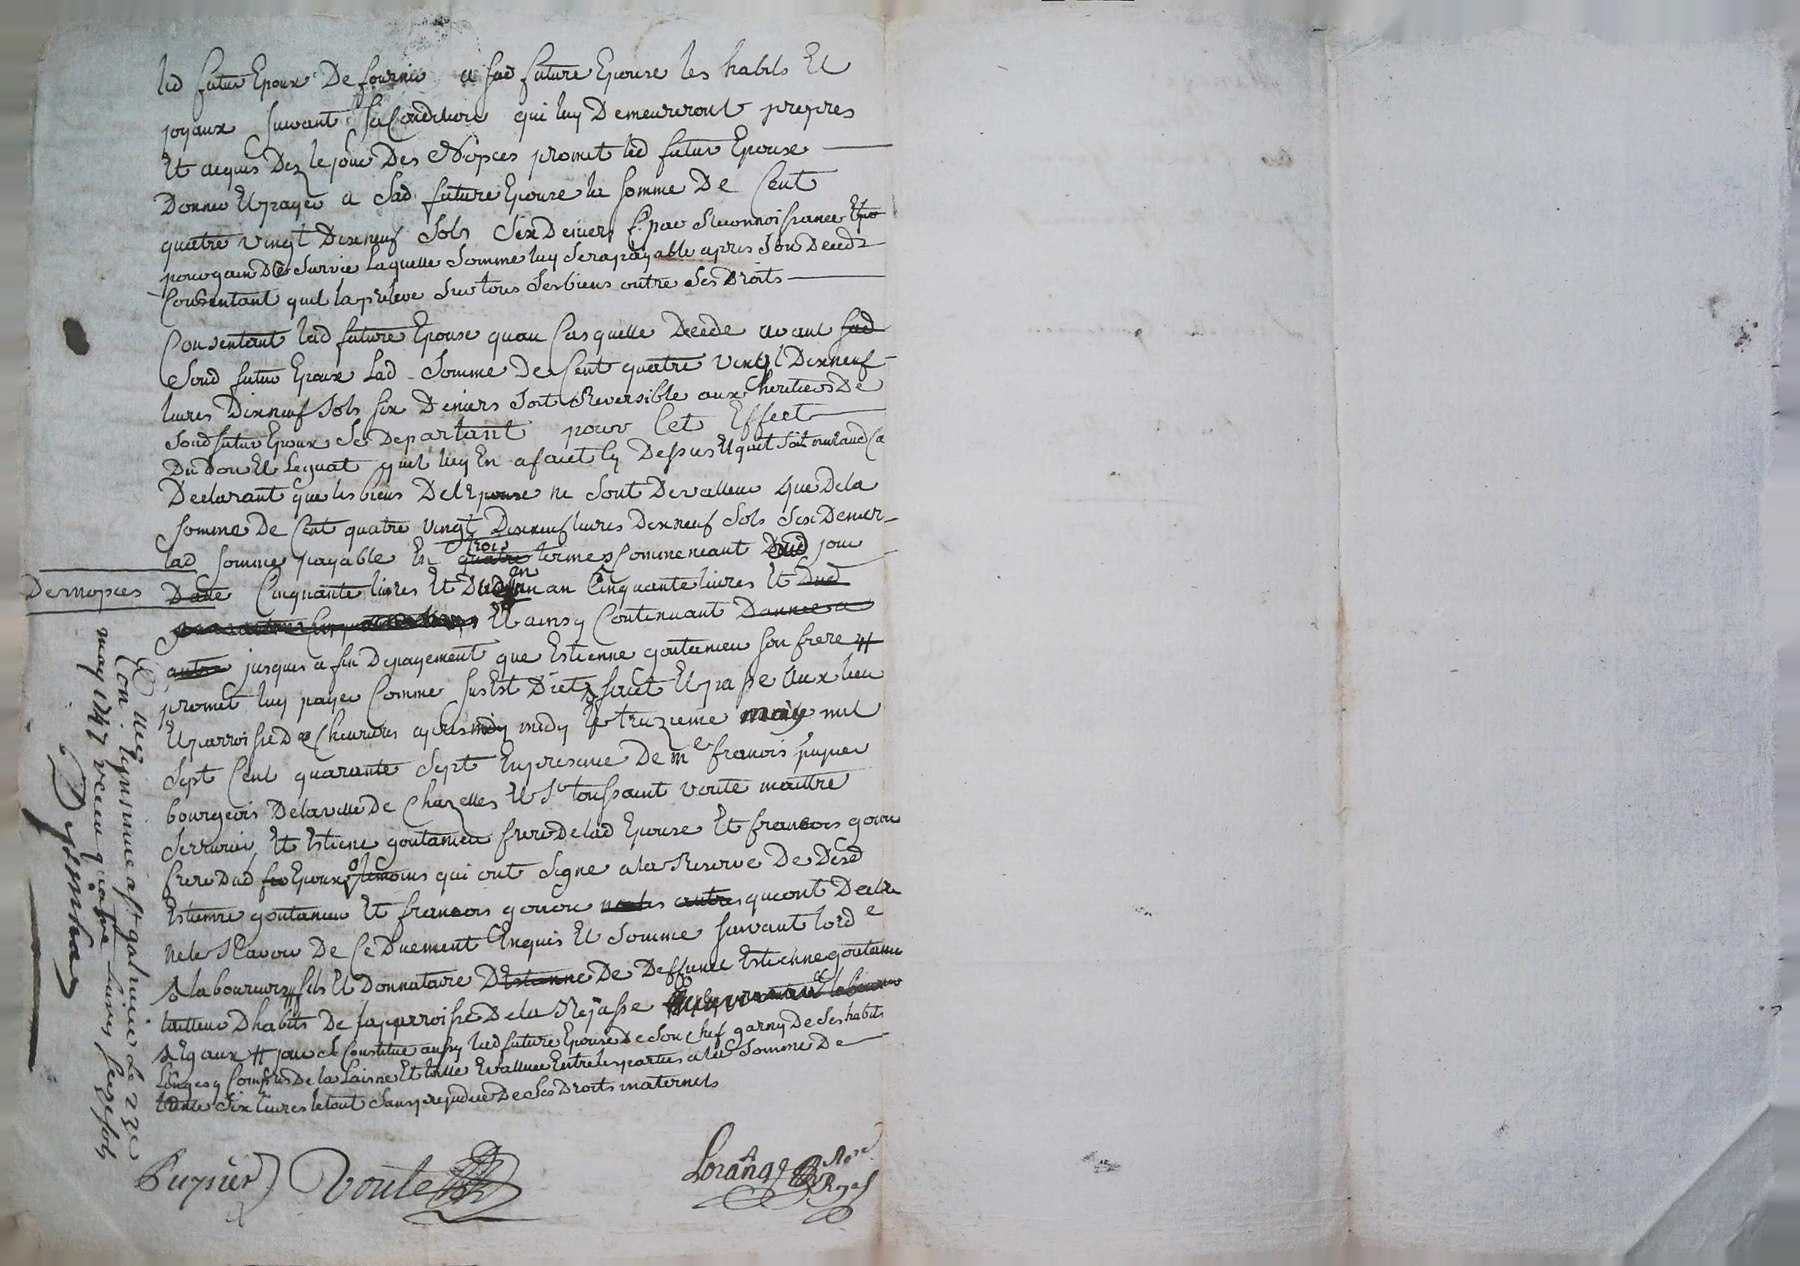 led futur Epoux De fournir a sad future Epouse les habits Et
joyaux suivant sa Condition qui luy Demeureront propres
Et acquis Dez le jour Des Nopces promet led futur Epoux
Donner Et payer a Sad future Epouse la somme De Cent
quatre vingt Dixneuf Sols Six Deniers par Reconnoissance
pour gain De Survie laquelle Somme luy Sera payable apres Son Decedz
Consentant quil la preleve Sur tous Ses biens outre Ses Droits
Consentant lad future Epouse quau Cas quelle Decede avant sad
Soud futur Epoux Lad Somme De Cent quatre vingt Dixneuf
livres Dixneuf Sols Six Deniers Soit Reversible aux heritiers De
Soud futur Epoux Se Departant pour Cet Effect
Du Don Et Leguat quil luy En a faict Cy Dessus Et quel
Declarant que les biens De lEpouse ne Sont De valleur que De la
Somme De Cent quatre vingt Dixneuf livres Dixneuf Sols Six Denier
lad Somme payable En quatre trois termes Commencant Dud jour
Des nopces
Cinquante livres Et Dud en un an Cinquante livres Et Dud
Et ainsy Continuant Dannee a
autre jusques a fin De payement que Estienne goutanieu son frere
promet luy payer Comme Sus Est Diet faict Et passé Aux lieu
Et parroisse De Chevrieres apres midy le treizieme may mil
Sept Cent quarante Sept En presence De me francois pupier
bourgeois De la ville De Chazelles Et Sr toussaint voute maittre
Serrurier Et Estiene goutanieu frere De lad Epouse Et francois gorou
frere Dud Epoux temoins qui ont Signe a la Reserve De Desd
Estienne goutanieu Et francois gorou autres qui ont Declare
ne le Scavoir De Ce Duement Enquis Et Somme suivant lord
laboureur fils Et Donnataire DEstienne De Deffunct Estienne goutanieu
tailleur Dhabits De la parroisse De la
Egaux Constitue aussy lad future Epouse De Son Chef garny De Ses habits
Linges y Compris De la Laine Et toille Evalluee Entre les parties a la Somme De
trente Six livres le tout Sans prejudice De Ses Droits maternels
Con. et insinue a st galmier le 23e
may 1747 recu quatre livres seize sols
Pupier Voute Lorange Nore Royal